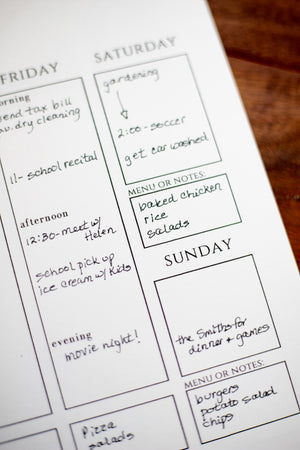 FRIDAY
morning
send tax bill
dry cleaning
11- school recital
afternoon
12:30- meet w/
Helen
school pick up
ice cream w/ kids
evening
movie night!
Pizza
salads
SATURDAY
gardening
2:00- soccer
get car washed
MENU OR NOTES:
baked chicken
rice
salads
SUNDAY
the Smiths for
dinner + games
MENU OR NOTES:
burgers
potato salad
chips